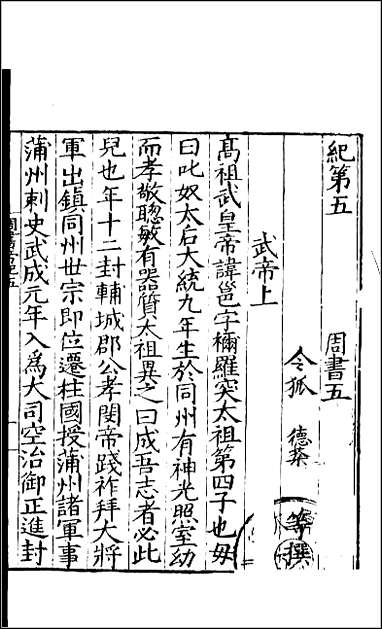 紀第五　周書五
令狐　德棻　等撰
武帝上
高祖武皇帝諱邕字禰羅突太祖第四子也毋
曰叱奴太后大統九年生於同州有神光照室幼
而孝敬聦敏有器質太祖異之曰成吾志者必此
兒也年十二封輔城郡公孝閔帝踐祚拜大將
軍出鎮同州世宗即位遷柱國授蒲州諸軍事
蒲州刺史武成元年入爲大司空治御正進封